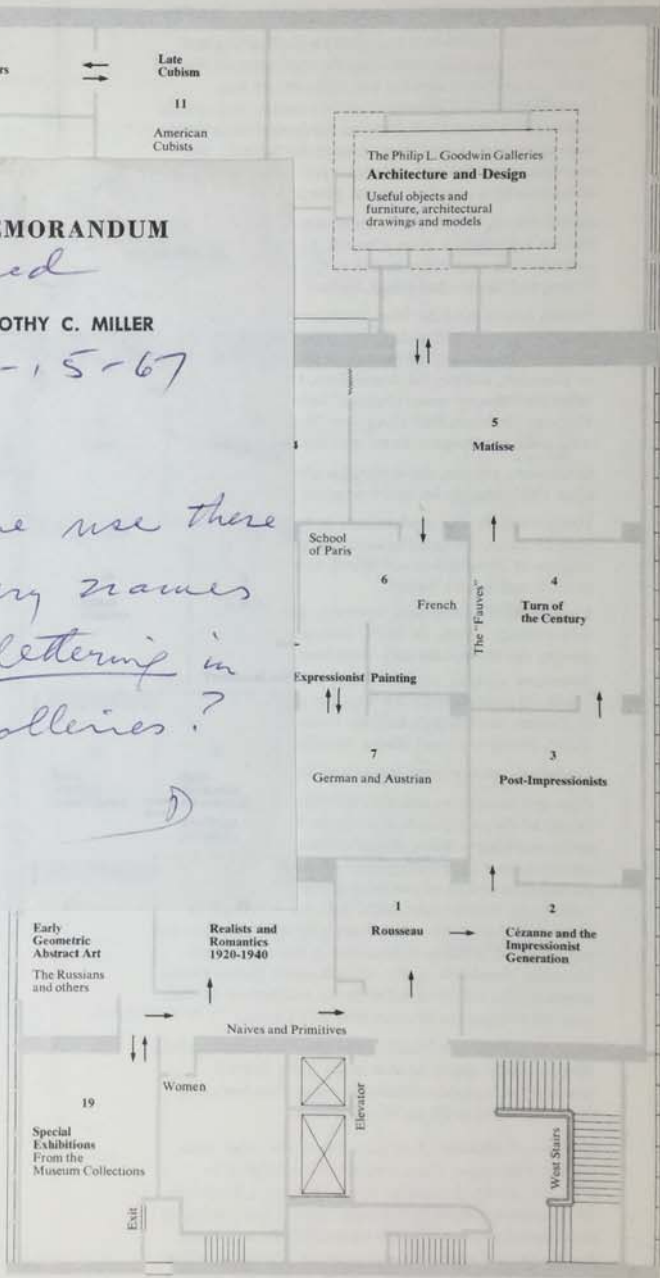 rs
Late
Cubism
11
American
Cubists
The Philip L. Goodwin Galleries
Architecture and Design
Useful objects and
furniture, architectural
drawings and models
EMORANDUM
ed
OTHY C. MILLER
-15-67
5
Matisse
e use there
ry names
lettering in
alleries?
D
School
of Paris
6
French
The "Fauves"
4
Turn of
the Century
Expressionist Painting
7
German and Austrian
3
Post-Impressionists
Early
Geometric
Abstract Art
The Russians
and others
Realists and
Romantics
1920-1940
1
Rousseau
2
Cézanne and the
Impressionist
Generation
Naives and Primitives
19
Special
Exhibitions
From the
Museum Collections
Women
Elevator
West Stairs
Exit